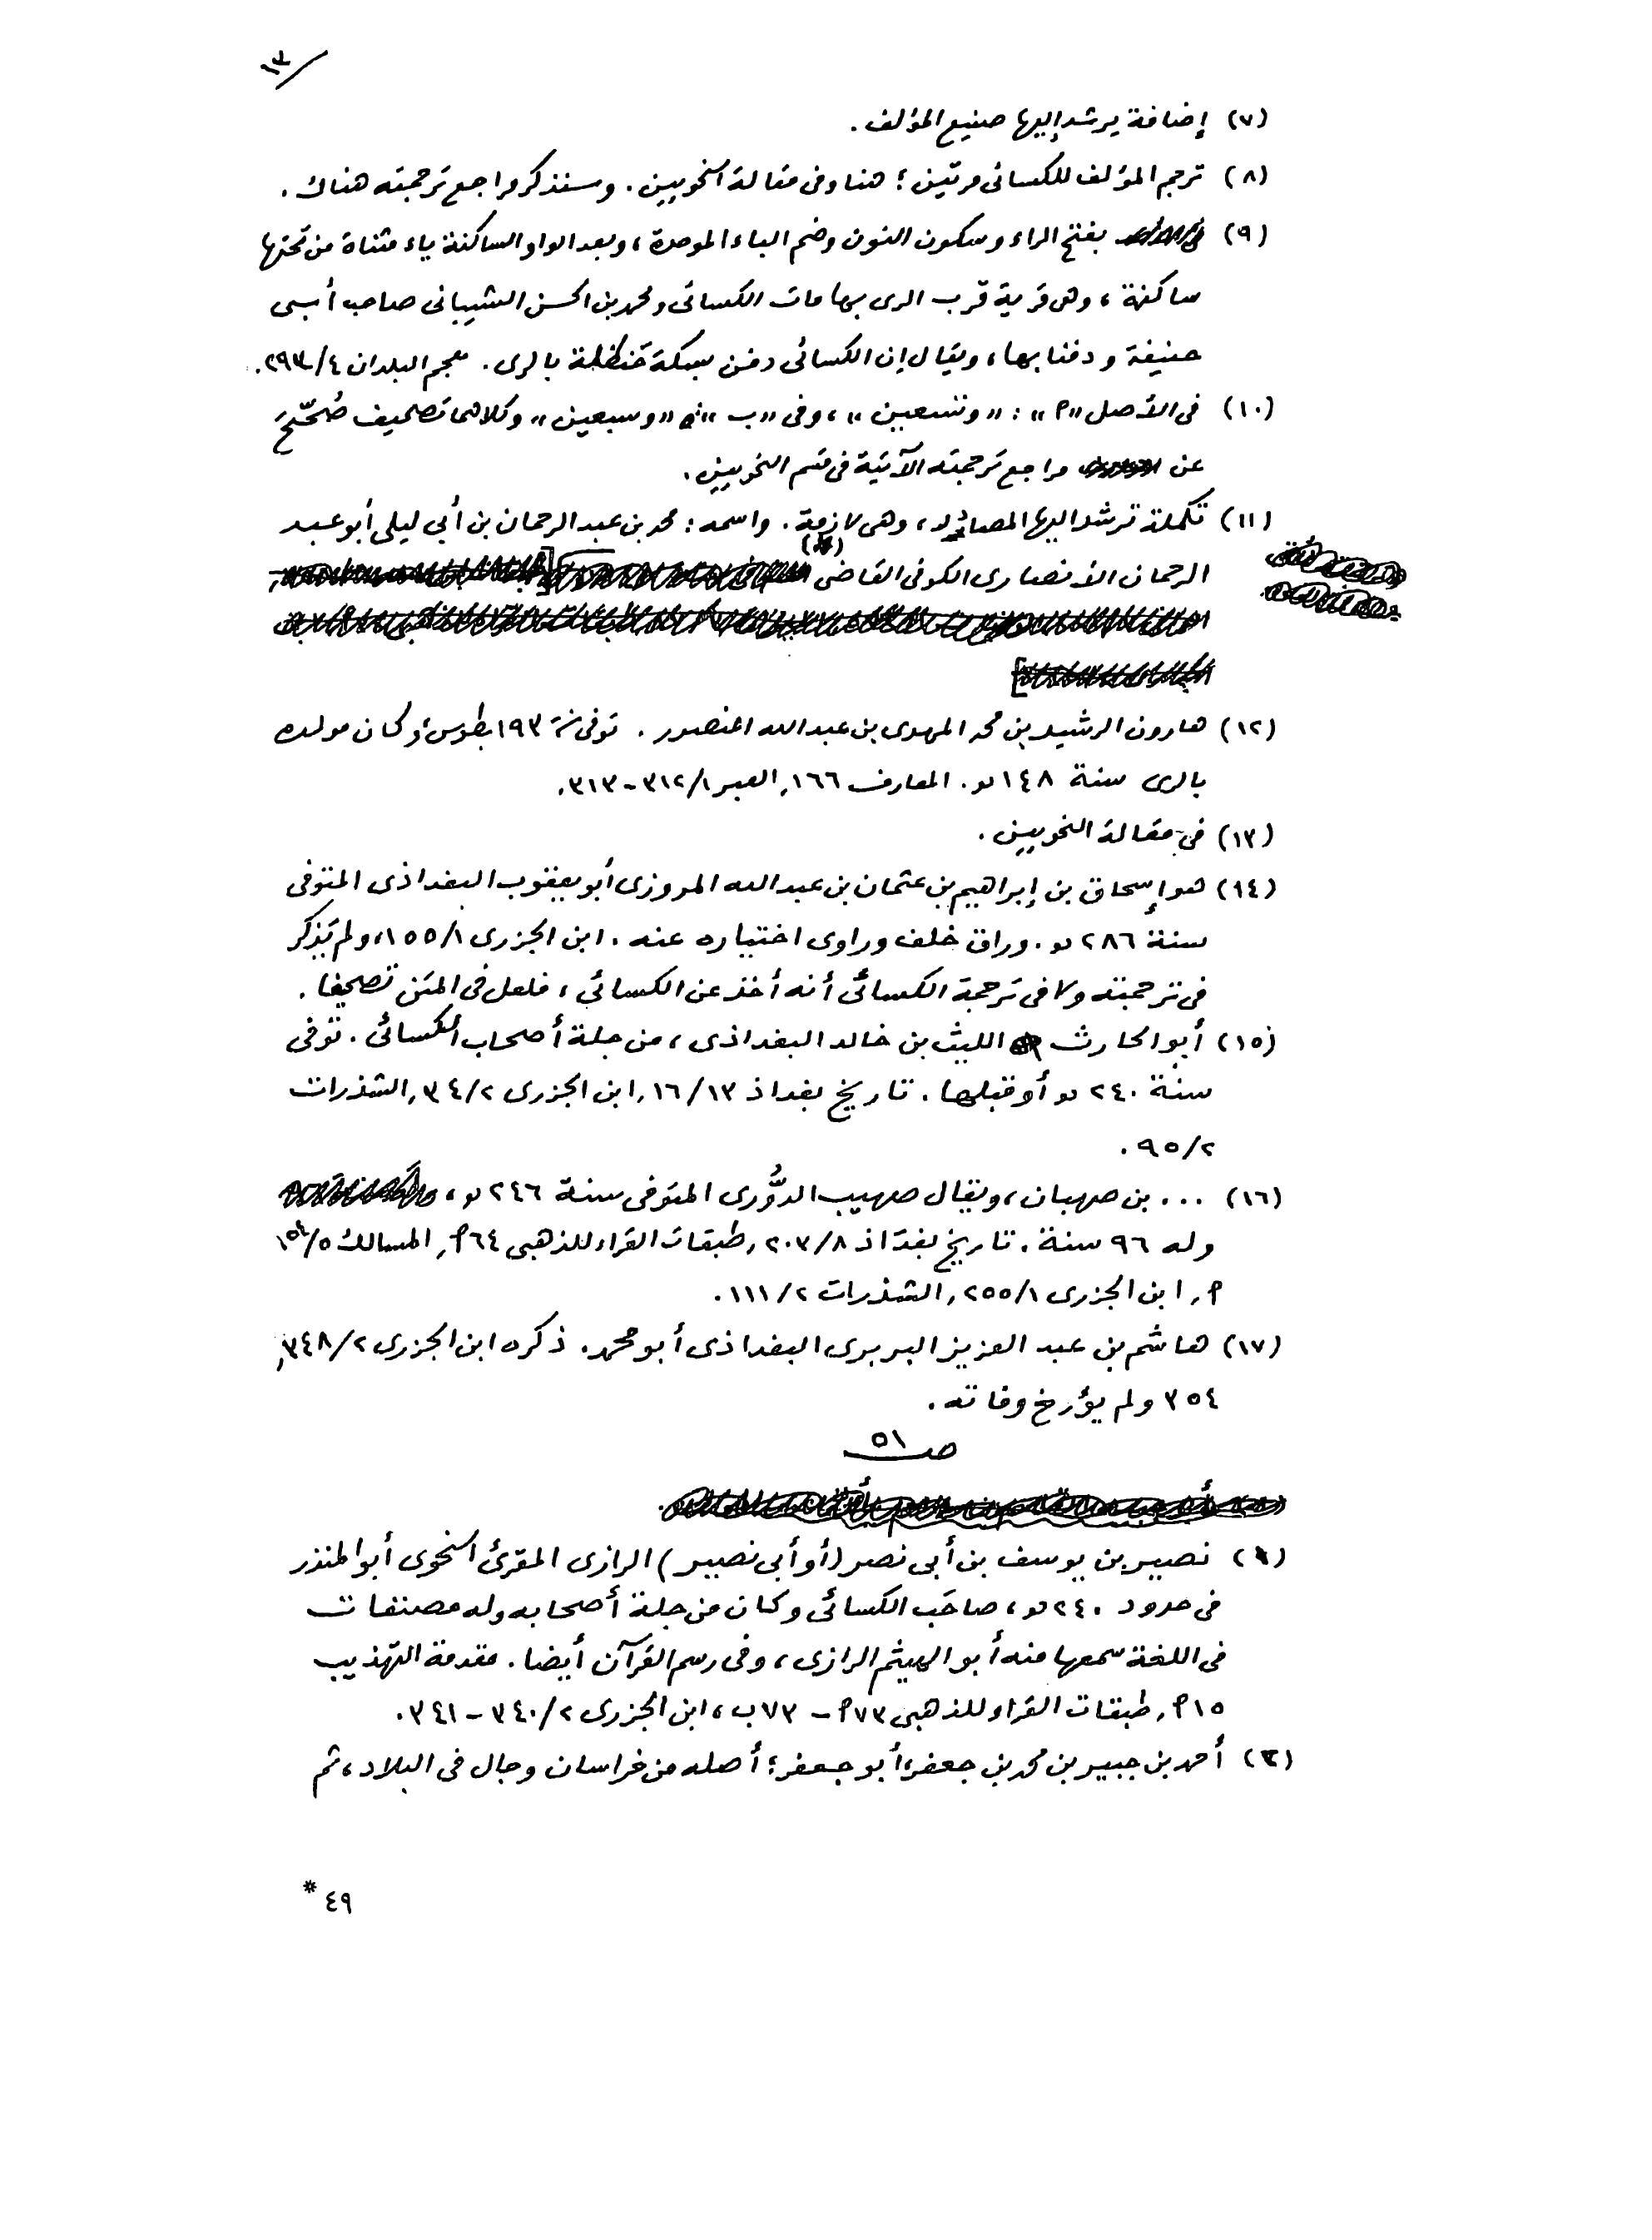 ١٣
(٧) إضافة يرشد إليها صنيع المؤلف .
(٨) ترجم المؤلف للكسائى مرتين ؛ هنا وفى مقالة النحويين . وسنذكر مراجع ترجمته هناك .
(٩) بفتح الراء وسكون النون وضم الباء الموحدة ، وبعد الواو الساكنة ياء مثناة من تحتها
ساكنة ، وهى قرية قرب الرى بها مات الكسائى ومحمد بن الحسن الشيبانى صاحب أبى
حنيفة ودفنا بها ، ويقال إن الكسائى دفن بسكة حنظلة بالرى . معجم البلدان ٤/٢٩٣ .
(١٠) فى الأصل «م» : «وتسعين» ، وفى «ب» «وسبعين» وكلاهما تصحيف صُحّح
عن مراجع ترجمته الآتية فى قسم النحويين .
(١١) تكملة ترشد إليها المصادر ، وهى لازمة . واسمه : محمد بن عبد الرحمان بن أبي ليلى أبو عبد
الرحمان الأنصارى الكوفى القاضى
(١٢) هارون الرشيد بن محمد المهدى بن عبدالله المنصور . توفى سنة ١٩٣ بطوس ، وكان مولده
بالرى سنة ١٤٨ هـ . المعارف ١٦٦ , العبر ٣١٢/١ - ٣١٣ .
(١٣) فى مقالة النحويين .
(١٤) هو إسحاق بن إبراهيم بن عثمان بن عبدالله المروزى أبو يعقوب البغداذى المتوفى
سنة ٢٨٦ هـ . وراق خلف وراوى اختياره عنه . ابن الجزرى ١٥٥/١ ، ولم يذكر
فى ترجمته ولا فى ترجمة الكسائى أنه أخذ عن الكسائى ، فلعل فى المتن تصحيفا .
(١٥) أبو الحارث الليث بن خالد البغداذى ، من جلة أصحاب الكسائى . توفى
سنة ٢٤٠ هـ أو قبلها . تاريخ بغداذ ١٦/١٣ , ابن الجزرى ٣٤/٢ , الشذرات
٩٥/٢ .
(١٦) ... بن صهبان ، ويقال صهيب الدُّورى المتوفى سنة ٢٤٦ هـ ،
وله ٩٦ سنة . تاريخ بغداذ ٢٠٣/٨ , طبقات القراء للذهبى ٦٤م , المسالك ١٥٤/٥
م , ابن الجزرى ٢٥٥/١ , الشذرات ١١١/٢ .
(١٧) هاشم بن عبد العزيز البربرى البغداذى أبو محمد . ذكره ابن الجزرى ٣٤٨/٢ ,
٣٥٤ ولم يؤرخ وفاته .
صـ ٥١
(١) نصير بن يوسف بن أبى نصر (أو أبى نصير) الرازى المقرئ النحوى أبو المنذر
فى حدود ٢٤٠ هـ ، صاحب الكسائى وكان من جلة أصحابه وله مصنفات
فى اللغة سمعها منه أبو الهيثم الرازى ، وفى رسم القرآن أيضا . مقدمة التهذيب
١٥م , طبقات القراء للذهبى ٧٣م - ٧٣ب ، ابن الجزرى ٣٤٠/٢ - ٣٤١ .
(٢) أحمد بن جبير بن محمد بن جعفر ، أبو جعفر ؛ أصله من خراسان وجال فى البلاد ، ثم
٤٩ *